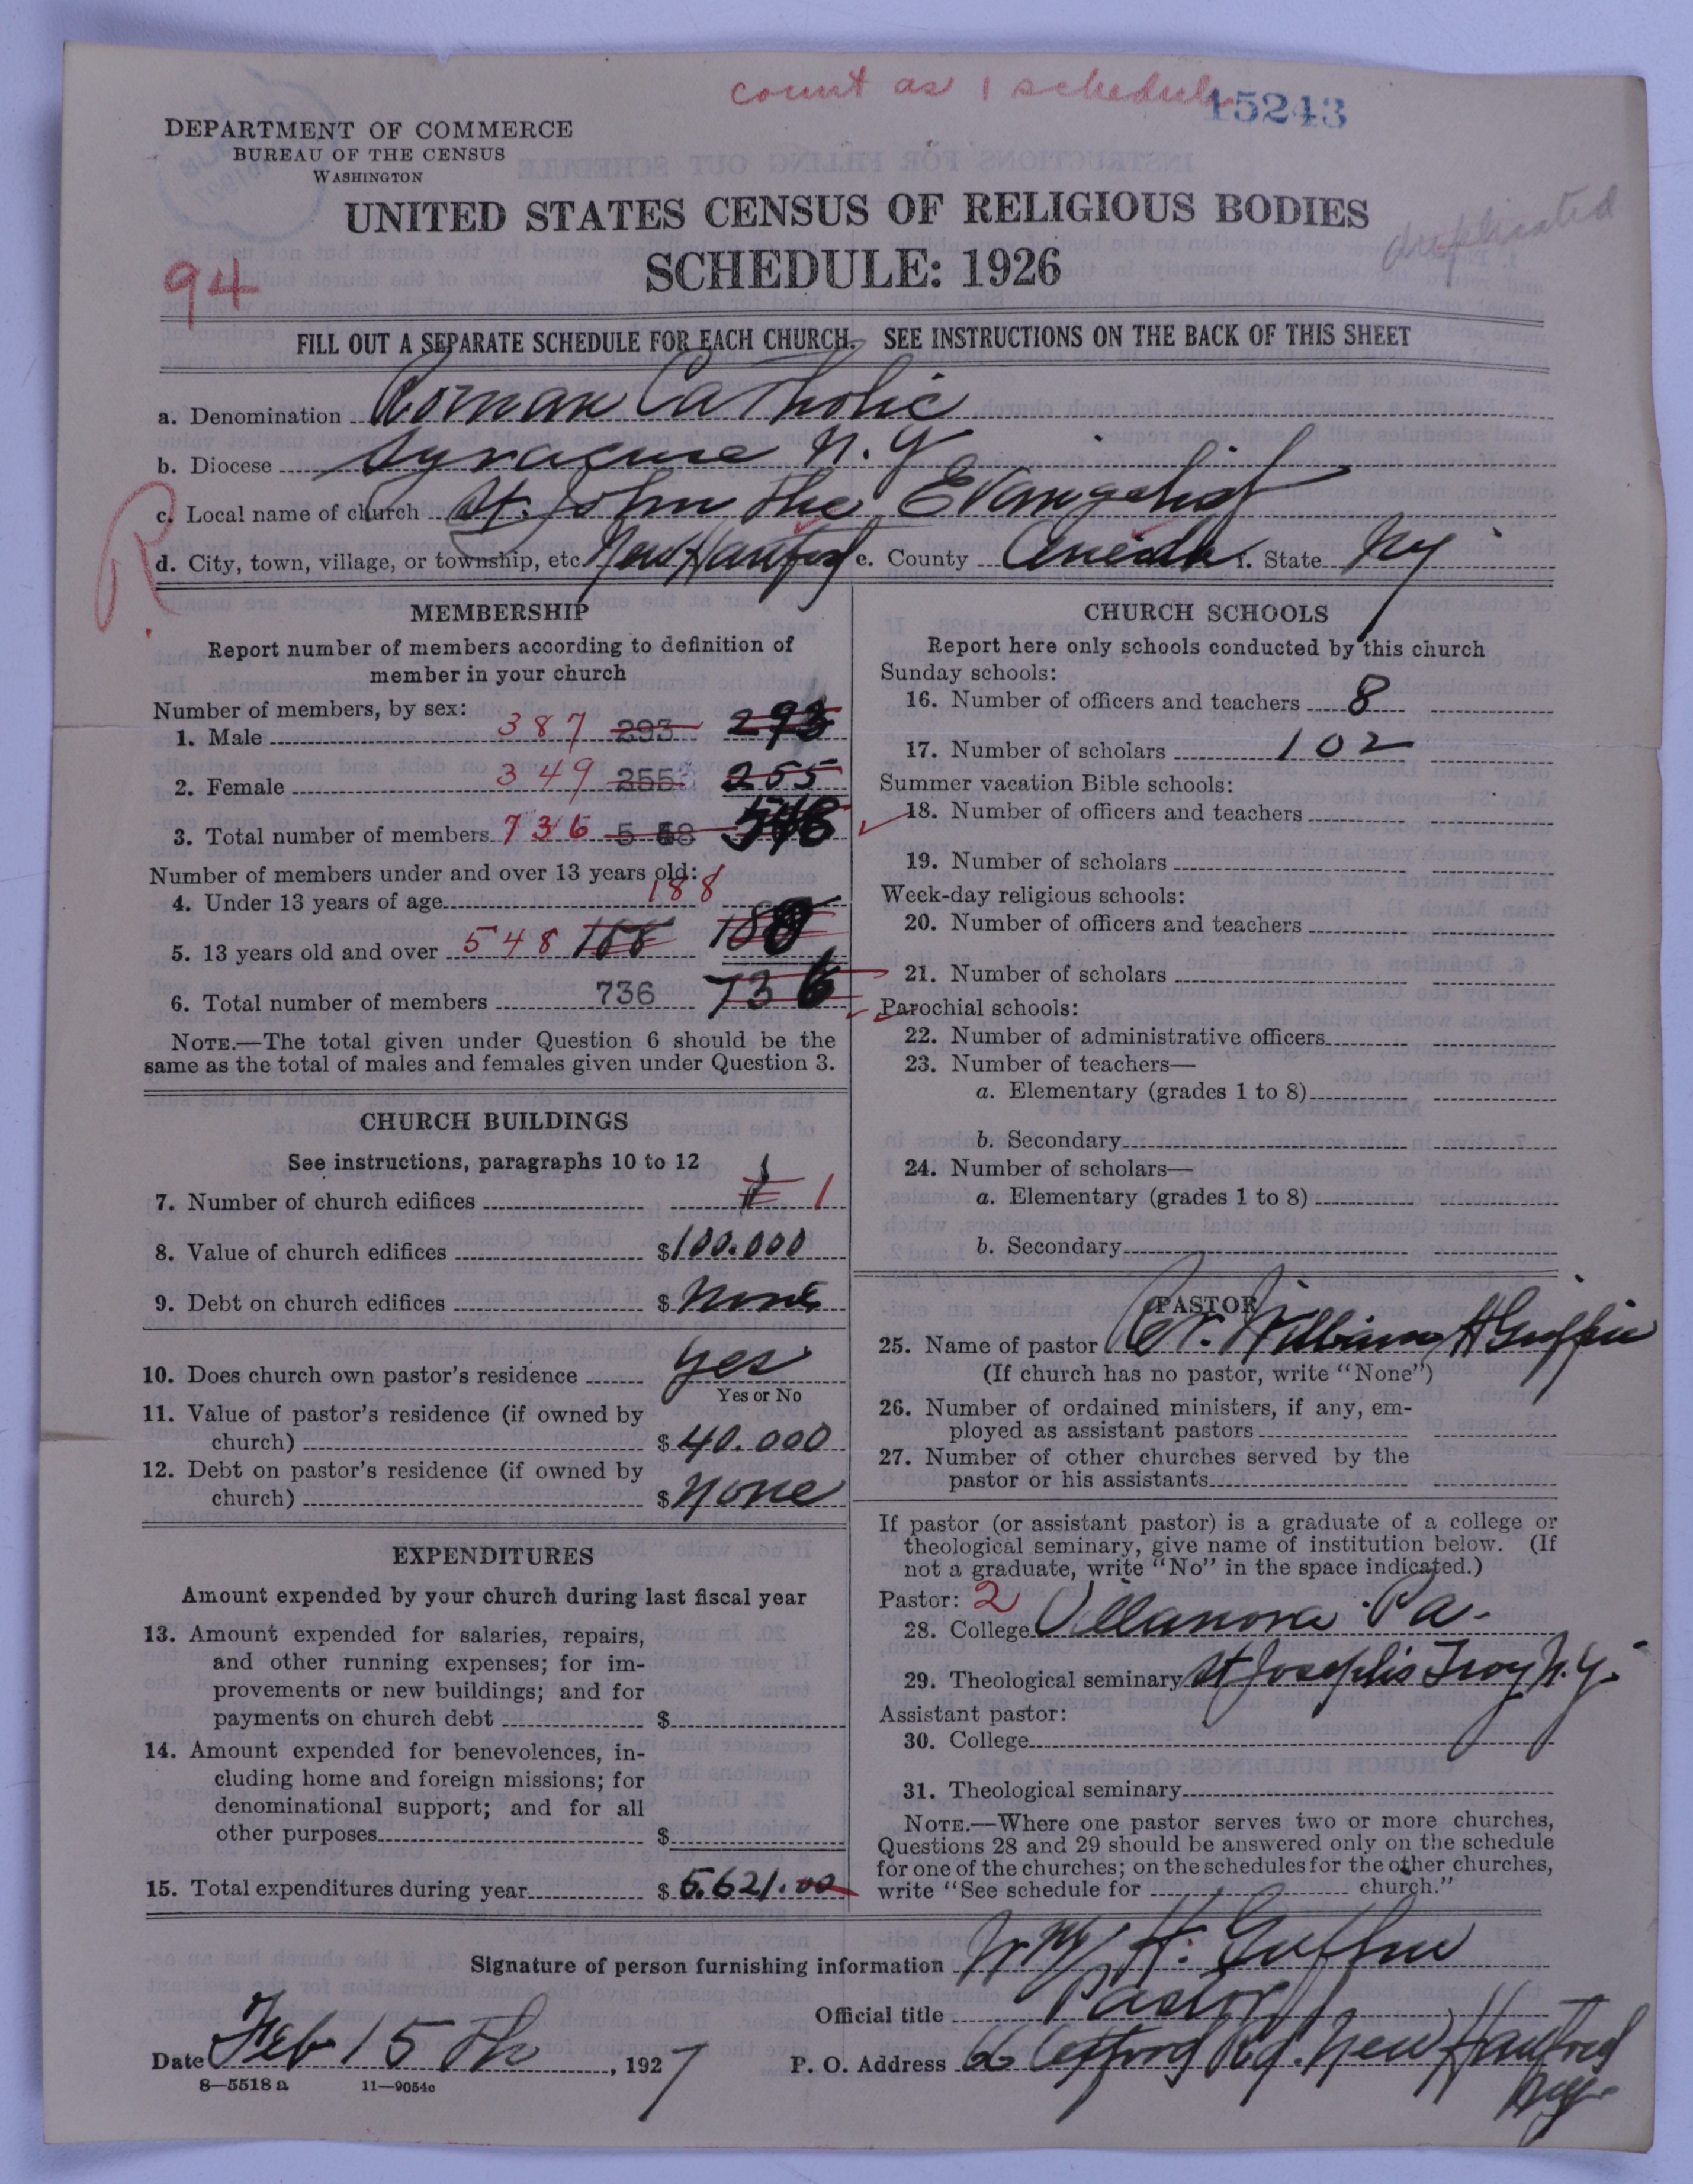 count as 1 schedule
15243
DEPARTMENT OF COMMERCE
BUREAU OF THE CENSUS
WASHINGTON
UNITED STATES CENSUS OF RELIGIOUS BODIES
duplicated
SCHEDULE: 1926
94
FILL OUT A SEPARATE SCHEDULE FOR EACH CHURCH. SEE INSTRUCTIONS ON THE BACK OF THIS SHEET
a. Denomination Roman Catholic
b. Diocese Syracuse N.Y
c. Local name of church St. John the Evangelist
R
d. City, town, village, or township, etc New Hartford e. County Oneida f. State N.Y
MEMBERSHIP
Report number of members according to definition of
member in your church
Number of members, by sex:
1. Male 387 293 293
2. Female 349 255 255
3. Total number of members 736 548
Number of members under and over 13 years old:
4. Under 13 years of age 188
5. 13 years old and over 548 188 188
6. Total number of members 736 736
NOTE.—The total given under Question 6 should be the
same as the total of males and females given under Question 3.
CHURCH BUILDINGS
See instructions, paragraphs 10 to 12
7. Number of church edifices 1 1
8. Value of church edifices $100.000
9. Debt on church edifices $ None
10. Does church own pastor's residence Yes
Yes or No
11. Value of pastor's residence (if owned by
church) $40.000
12. Debt on pastor's residence (if owned by
church) $ None
EXPENDITURES
Amount expended by your church during last fiscal year
13. Amount expended for salaries, repairs,
and other running expenses; for im-
provements or new buildings; and for
payments on church debt $
14. Amount expended for benevolences, in-
cluding home and foreign missions; for
denominational support; and for all
other purposes $
15. Total expenditures during year $ 5.621.00
CHURCH SCHOOLS
Report here only schools conducted by this church
Sunday schools:
16. Number of officers and teachers 8
17. Number of scholars 102
Summer vacation Bible schools:
18. Number of officers and teachers
19. Number of scholars
Week-day religious schools:
20. Number of officers and teachers
21. Number of scholars
Parochial schools:
22. Number of administrative officers
23. Number of teachers—
a. Elementary (grades 1 to 8)
b. Secondary
24. Number of scholars—
a. Elementary (grades 1 to 8)
b. Secondary
PASTOR
25. Name of pastor William H Griffin
(If church has no pastor, write "None")
26. Number of ordained ministers, if any, em-
ployed as assistant pastors
27. Number of other churches served by the
pastor or his assistants
If pastor (or assistant pastor) is a graduate of a college or
theological seminary, give name of institution below. (If
not a graduate, write "No" in the space indicated.)
Pastor: 2
28. College Villanova Pa.
29. Theological seminary St Josephs Troy N.Y.
Assistant pastor:
30. College
31. Theological seminary
NOTE.—Where one pastor serves two or more churches,
Questions 28 and 29 should be answered only on the schedule
for one of the churches; on the schedules for the other churches,
write "See schedule for church."
Signature of person furnishing information Wm H. Griffin
Official title Pastor
Date Feb 15 Th, 1927
P. O. Address Oxford Rd. New Hartford
N.Y.
8—5518 a 11—9054c